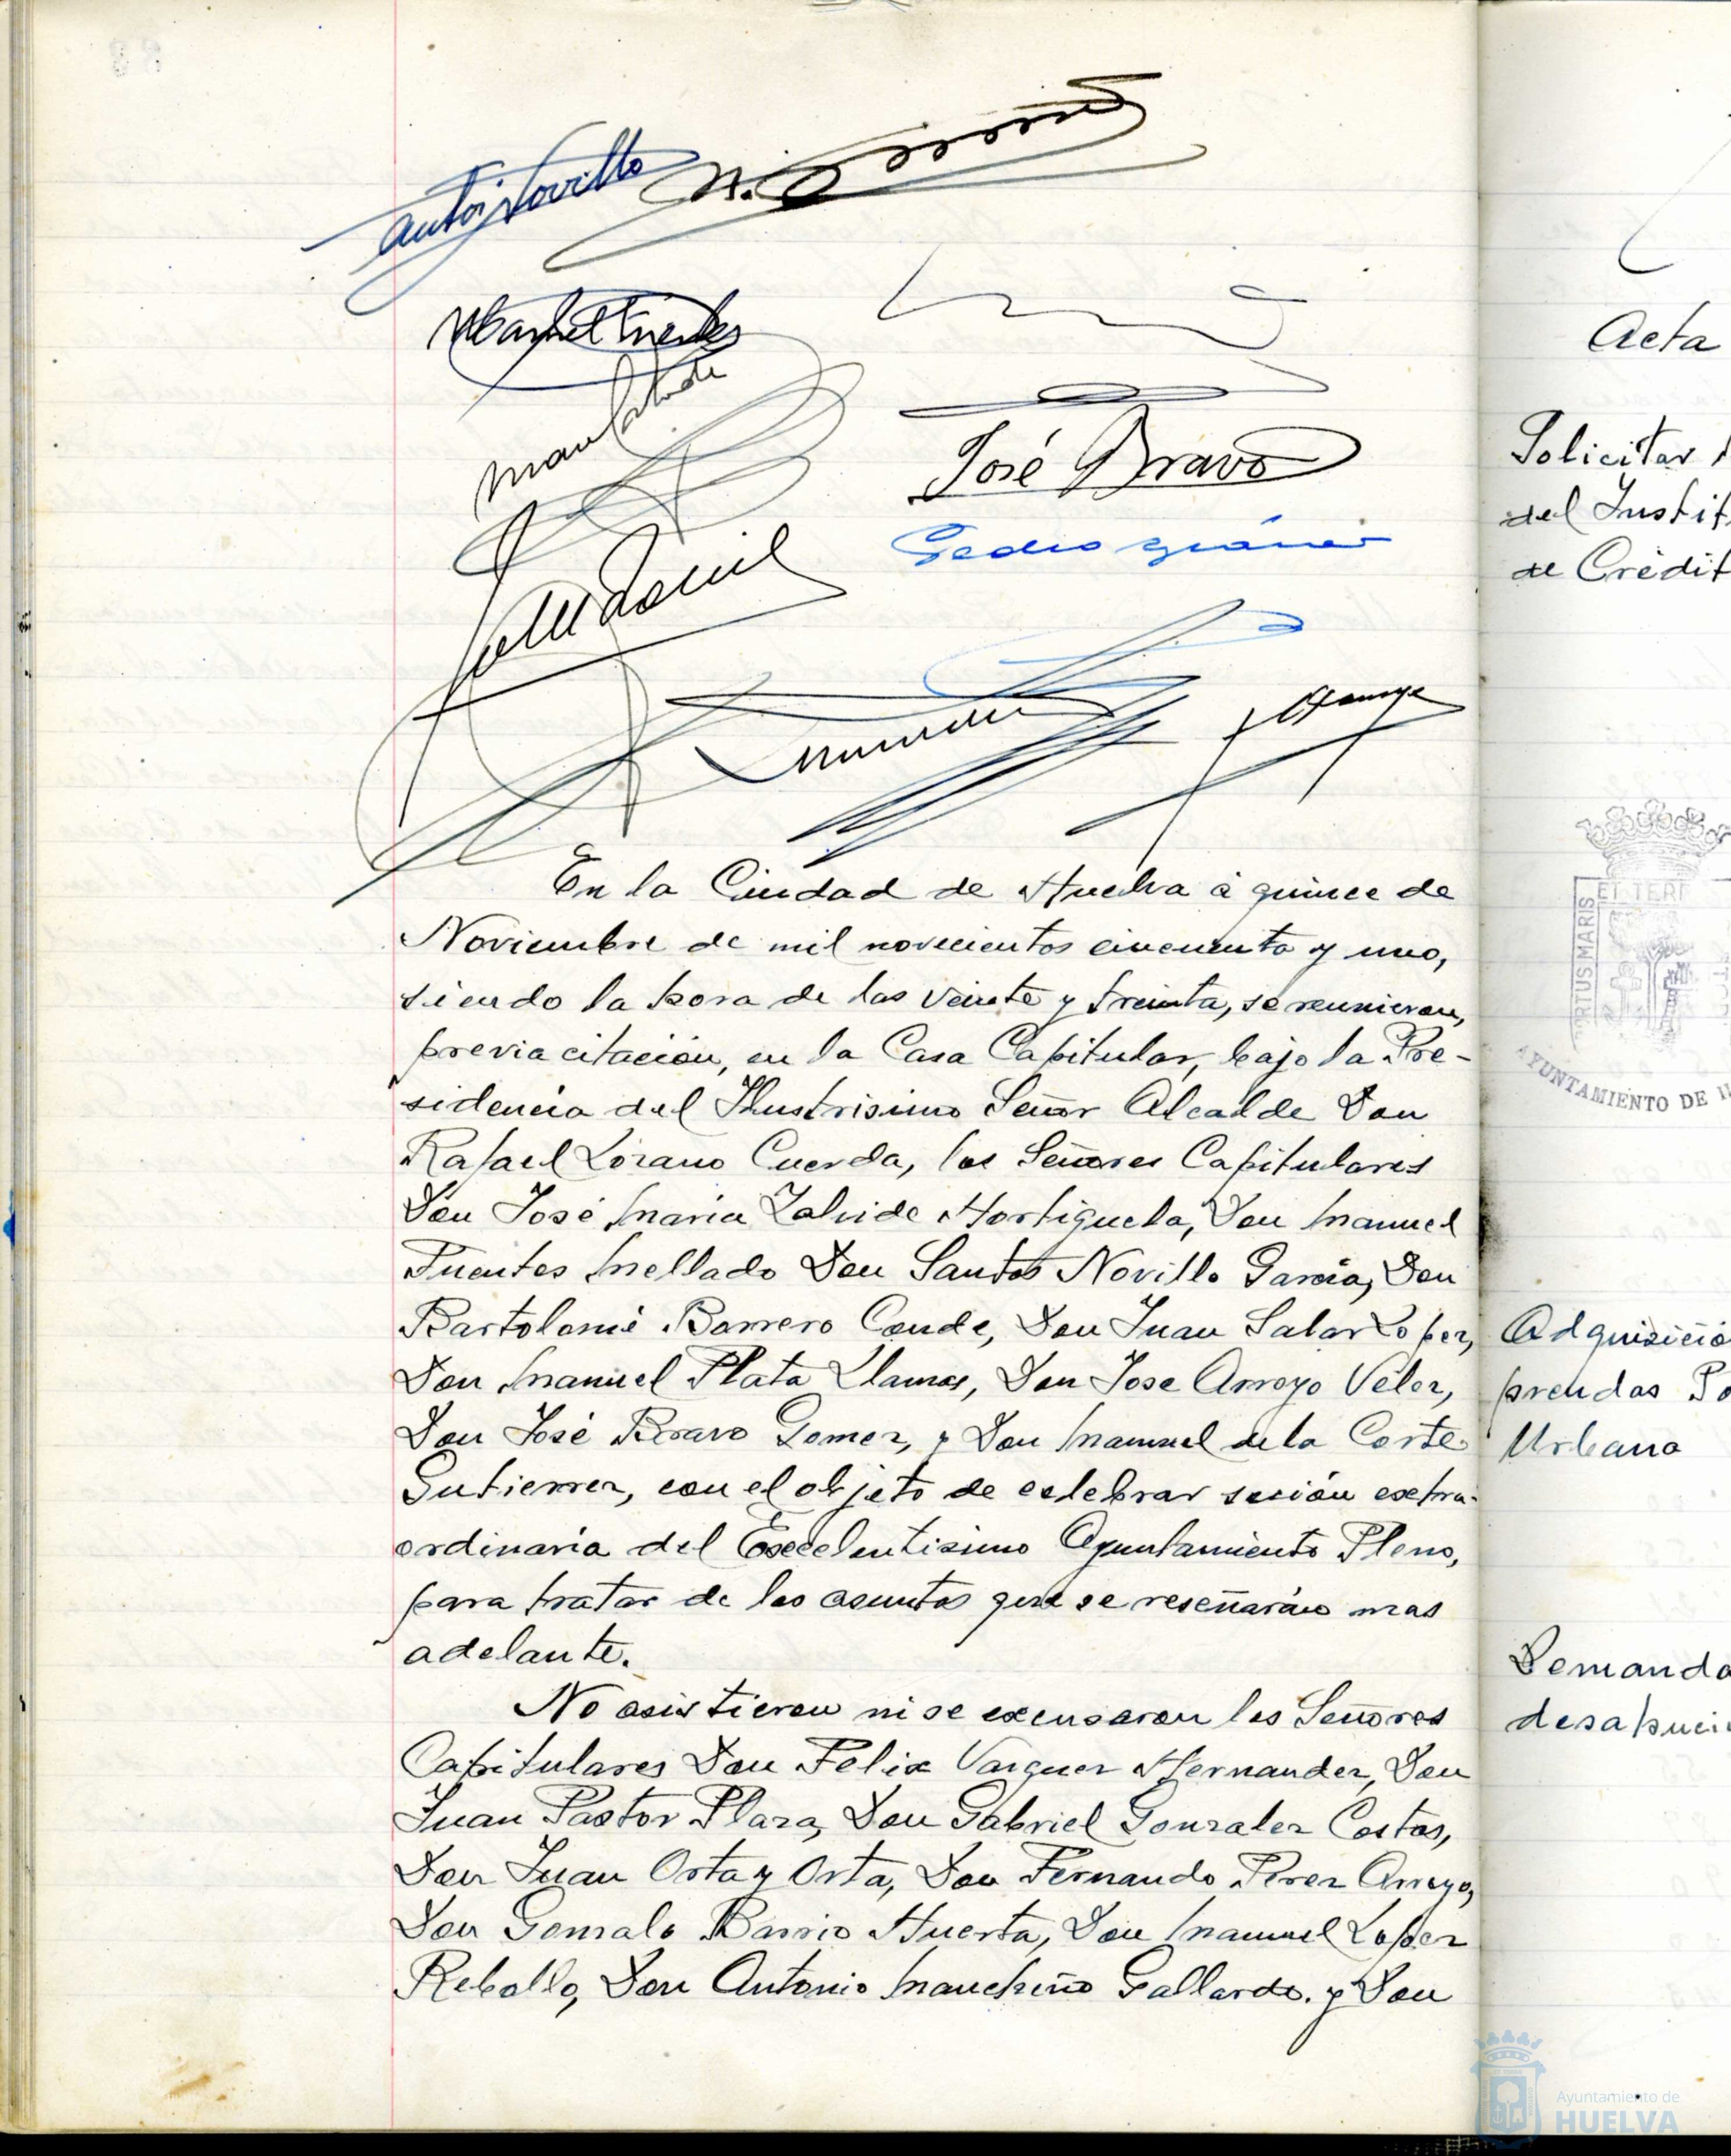 José Bravo
En la Ciudad de Huelva á quince de
Noviembre de mil novecientos cincuenta y uno,
siendo la hora de las veinte y treinta, se reunieron,
previa citación, en la Casa Capitular, bajo la Pre-
sidencia del Ilustrisimo Señor Alcalde Don
Rafael Lozano Cuerda, los Señores Capitulares
Don José Maria Zalvide Hortiguela, Don Manuel
Fuentes Mellado Don Santos Novillo Garcia, Don
Bartolomé Borrero Conde, Don Juan Salas Lopez,
Don Manuel Plata Llamas, Don Jose Arroyo Velez,
Don José Bravo Gomez, y Don Manuel de la Corte
Gutierrez, con el objeto de celebrar sesión extra-
ordinaria del Excelentisimo Ayuntamiento Pleno,
para tratar de los asuntos que se reseñarán mas
adelante.
No asistieron ni se excusaron los Señores
Capitulares Don Felix Vazquez Hernandez, Don
Juan Pastor Plaza, Don Gabriel Gonzalez Costas,
Don Juan Orta y Orta, Don Fernando Perez Arroyo,
Don Gonzalo Barrio Huerta, Don Manuel Lopez
Rebollo, Don Antonio Mancheño Gallardo. y Don
Acta
Solicitar
del Instit
de Crédit
ET TERR
PORTUS MARIS
AYUNTAMIENTO DE H
Adquisició
prendas Po
Urbana
Demanda
desahuci
Ayuntamiento de
HUELVA